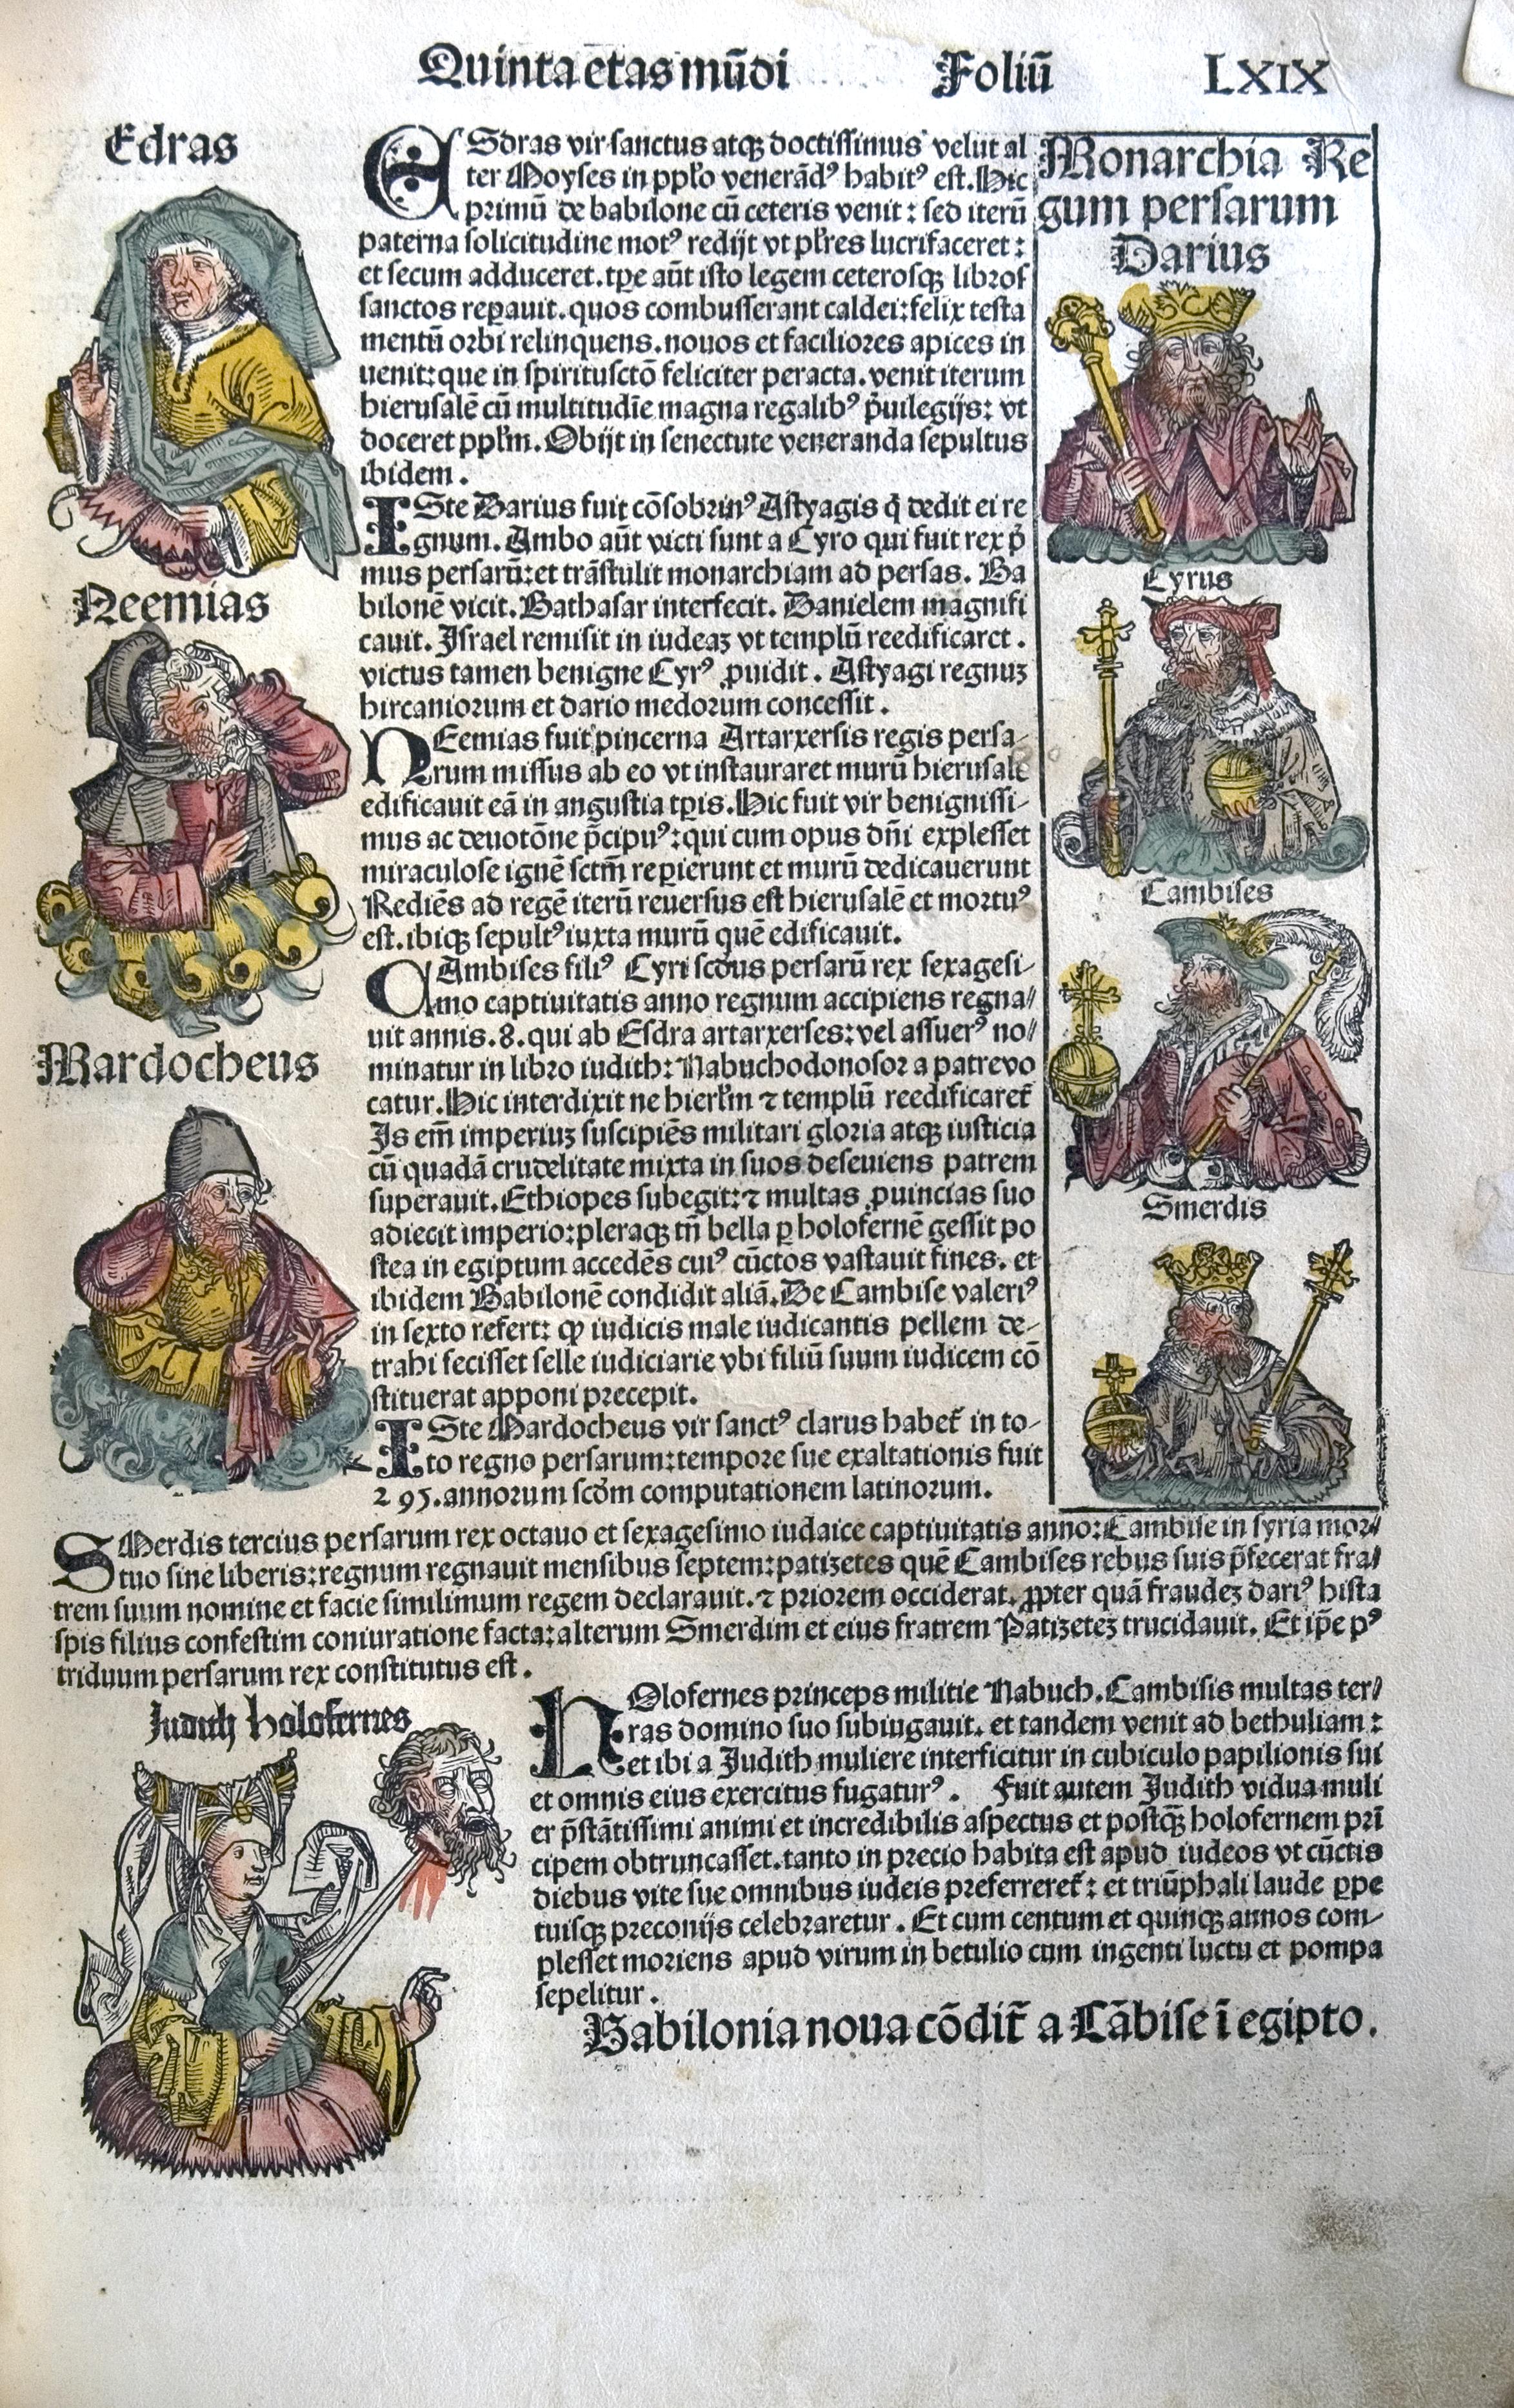 Quinta etas mūdi Foliū LXIX
Edras
ESdras vir sanctus atqꝫ doctissimus velut al
ter Moyses in pplo venerādꝰ habitꝰ est. Hic
primū de babilone cū ceteris venit: sed iterū
paterna solicitudine motꝰ redijt vt plres lucrifaceret:
et secum adduceret. tpe aūt isto legem ceterosqꝫ libros
sanctos reparauit. quos combusserant caldei: felix testa
mentū orbi relinquens. nouos et faciliores apices in
uenit: que in spiritusctō feliciter peracta. venit iterum
hierusalē cū multitudīe magna regalibꝰ p̄uilegijs: vt
doceret pplm. Obijt in senectute veneranda sepultus
ibidem.
ISte Darius fuit cōsobrinꝰ Astyagis q̄ dedit ei re
gnum. Ambo aūt victi sunt a Cyro qui fuit rex p̄
mus persarū: et trāstulit monarchiam ad persas. Ba
bilonē vicit. Bathasar interfecit. Danielem magnifi
cauit. Israel remisit in iudeaꝫ vt templū reedificaret.
victus tamen benigne Cyrꝰ ꝓuidit. Astyagi regnuꝫ
hircaniorum et dario medorum concessit.
Neemias
NEemias fuit pincerna Artarxersis regis persa-
rum missus ab eo vt instauraret murū hierusalē
edificauit eā in angustia tp̄is. Hic fuit vir benignissi-
mus ac deuotōne p̄cipuꝰ: qui cum opus dn̄i explesset
miraculose ignē sctm̄ reperierunt et murū dedicauerunt
Rediēs ad regē iterū reuersus est hierusalē et mortuꝰ
est. ibiqꝫ sepultꝰ iuxta murū quē edificauit.
CAmbises filiꝰ Cyri scdus persarū rex sexagesi-
mo captiuitatis anno regnum accipiens regna/
uit annis. 8. qui ab Esdra artarxerses: vel assuerꝰ no/
minatur in libro iudith: Nabuchodonosor a patre vo
catur. Hic interdixit ne hierlm ⁊ templū reedificaret̄
Is em̄ imperiuꝫ suscipiēs militari gloria atqꝫ iusticia
cū quadā crudelitate mixta in suos deseuiens patrem
superauit. Ethiopes subegit: ⁊ multas ꝓuincias suo
adiecit imperio: pleraqꝫ tn̄ bella ꝑ holofernē gessit po
stea in egiptum accedēs cuiꝰ cūctos vastauit fines. et
ibidem Babilonē condidit aliā. De Cambise valeriꝰ
in sexto refert: ꝙ iudicis male iudicantis pellem de-
trahi fecisset selle iudiciarie vbi filiū suum iudicem cō
stituerat apponi precepit.
Mardocheus
ISte Mardocheus vir sanctꝰ clarus habet̄ in to-
to regno persarum: tempore sue exaltationis fuit
295. annorum scdm computationem latinorum.
Monarchia Re
gum persarum
Darius
Cyrus
Cambises
Smerdis
SMerdis tercius persarum rex octauo et sexagesimo iudaice captiuitatis anno: Cambise in syria mor/
tuo sine liberis: regnum regnauit mensibus septem: patizetes quē Cambises rebus suis p̄fecerat fra/
trem suum nomine et facie similimum regem declarauit. ⁊ priorem occiderat. ꝓpter quā fraudeꝫ dariꝰ hista
spis filius confestim coniuratione facta: alterum Smerdim et eius fratrem Patizeteꝫ trucidauit. Et ip̄e pꝰ
triduum persarum rex constitutus est.
Judith holofernes
HOlofernes princeps militie Nabuch. Cambisis multas ter/
ras domino suo subiugauit. et tandem venit ad bethuliam:
et ibi a Judith muliere interficitur in cubiculo papilionis sui
et omnis eius exercitus fugaturꝰ. Fuit autem Judith vidua muli
er p̄stātissimi animi et incredibilis aspectus et postqꝫ̄ holofernem pri
cipem obtruncasset. tanto in precio habita est apud iudeos vt cūctis
diebus vite sue omnibus iudeis preferreret̄: et triūphali laude ꝑpe
tuisqꝫ preconijs celebraretur. Et cum centum et quinqꝫ annos com-
plesset moriens apud virum in betulio cum ingenti luctu et pompa
sepelitur.
Babilonia noua cōdit̄ a Cābise ī egipto.